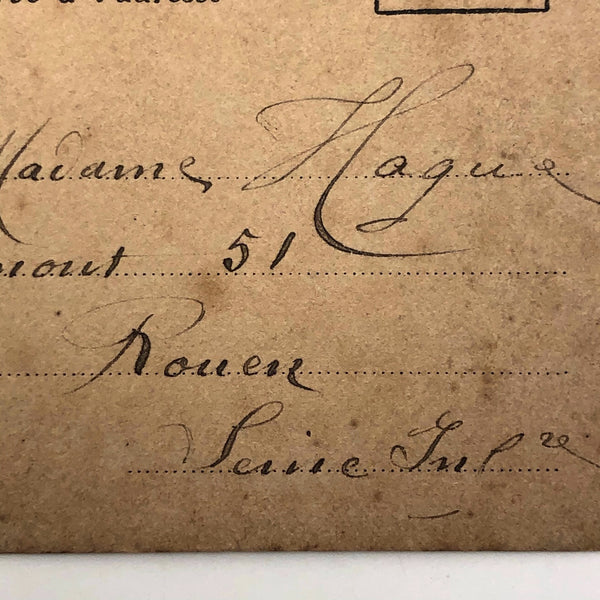 à l'adresse
Madame Hague
mont 51
Rouen
Seine Infre